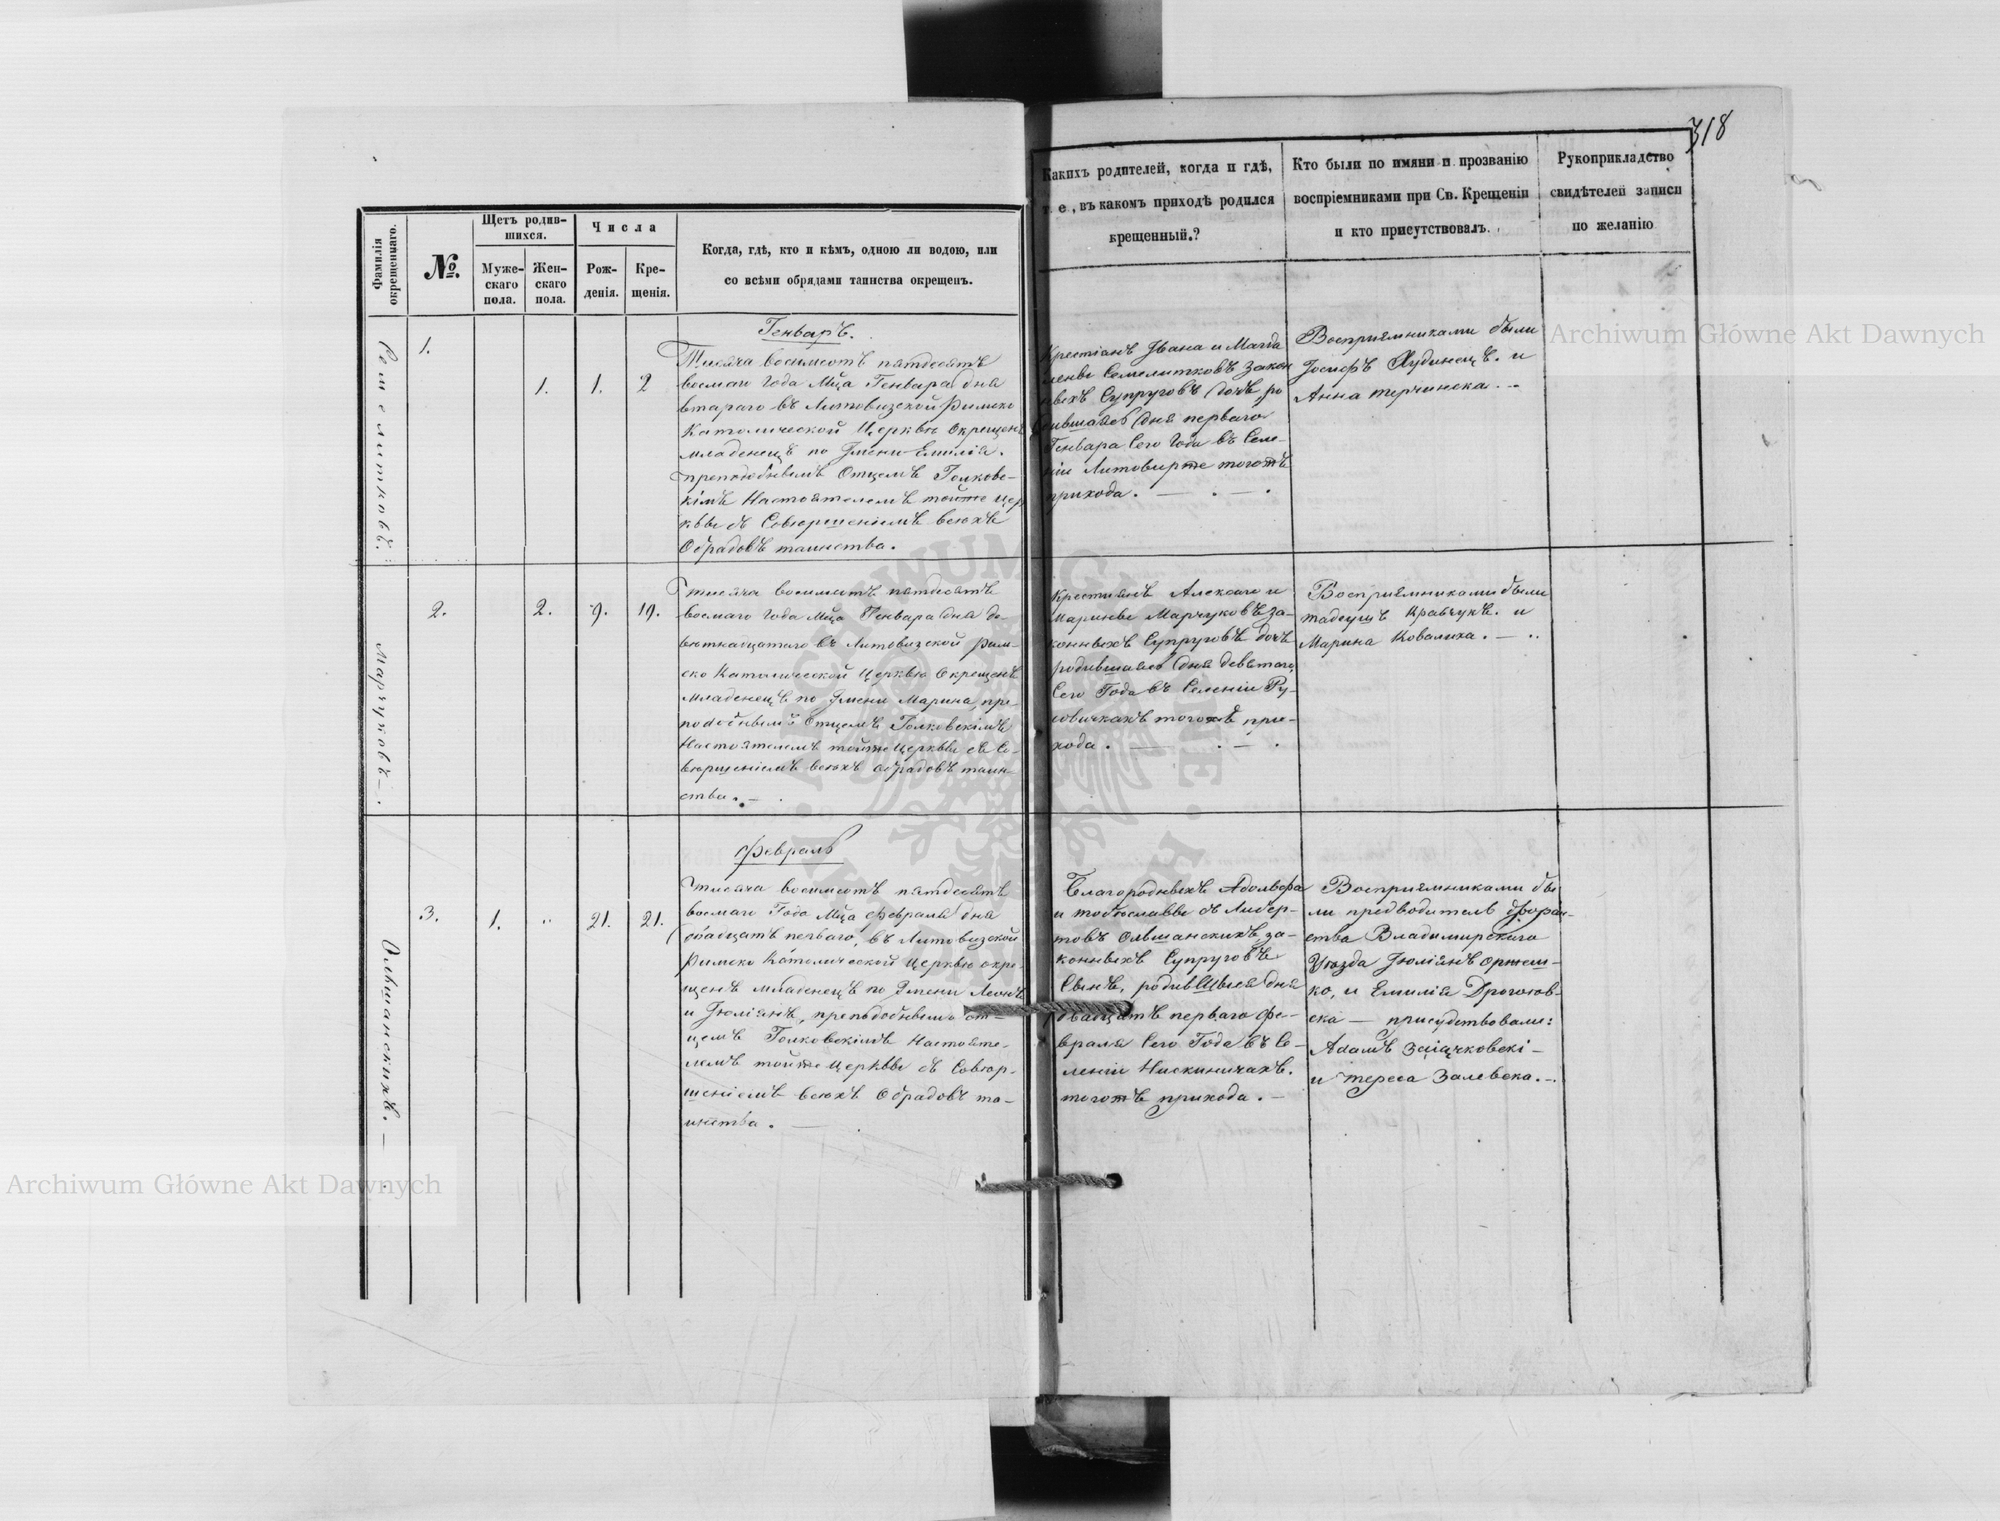 318
Фамилія окрещеннаго.
№.
Щетъ родив-
шихся.
Муже-
скаго
пола.
Жен-
скаго
пола.
Числа
Рож-
денія.
Кре-
щенія.
Когда, гдѣ, кто и кѣмъ, одною ли водою, или
со всѣми обрядами таинства окрещенъ.
Какихъ родителей, когда и гдѣ,
т. е., въ какомъ приходѣ родился
крещенный.?
Кто были по имяни и прозванію
воспріемниками при Св. Крещеніи
и кто присутствовалъ.
Рукоприкладство
свидѣтелей записи
по желанію
Семелитковъ.
1.
1.
1.
2
Генваръ.
Тисяча восимсотъ пятдесятъ
восмаго Года Мца Генвара дня
втараго въ Литовизской Римско
Католической Церквѣ Окрещенъ
младенецъ по Имени Емилія.
преподобнымъ Отцемъ Голковс-
кімъ Настоятелемъ тойже Цер
квы съ Совюршеніемъ всюхъ
Обрадовъ таинства.
Крестіанъ Ивана и Магда
лены Семелитковъ Закон
ныхъ Супруговъ дочь, ро
дившаясь дня перваго
Генвара Сего Года въ Селе-
ніи Литовирже тогожъ
прихода.
Восприямниками были
Іосифъ Худинецъ. и
Анна терчинска.
Марчуковъ
2.
2.
9.
19.
тисяча восимсотъ пятдесятъ
восмаго Года Мца Генвара дня де-
вятнадцатаго въ Литовизской Рим-
ско Католической Церквѣ Окрещенъ
Младенецъ по Имени Марина, пре
подобнымъ Отцемъ Голковскімъ
Настоятелемъ тойже Церквы съ Со-
вюршеніемъ всюхъ Обрадовъ таин-
ства.
Крестиянъ Алексаги и
Марины Марчуковъ за-
конныхъ Супруговъ дочь
родившаясь дня девятаго,
Сего Года въ Селеніи Ру-
совичкахъ тогожъ при-
хода.
Восприямниками были
тадеушъ Кравчукъ. и
Марина Ковалиха.
Олвшанскихъ.
3.
1.
"
21.
21.
Февраль
тисяча восимсотъ пятдесятъ
восмаго Года Мца Февраля дня
двадцатъ перваго, въ Литовизской
Римско Католической Церквѣ окре-
щенъ младенецъ по Имени Леонъ
и Июліянъ, преподобнымъ От-
цемъ Голковскімъ Настояте-
лемъ тойже Церквы съ Совюр-
шеніемъ всюхъ Обрадовъ та-
инства.
Благородныхъ Адольфа
и тобославвы съ Либер-
товъ Олвшанскихъ, за-
конныхъ Супруговъ
Сынъ, родившыся дня
двадцатъ перваго фе-
враля Сего Года въ Се-
леніи Нискиничахъ.
тогожъ прихода.
Восприямниками бы
ли предводитель дворан-
ства Владимирскаго
Уюзда Июліянъ Ортеш-
ко, и Емилія Дрогоюв-
ска — присудствовали:
Адамъ Заіачковскі-
и тереса Залевска.
Archiwum Główne Akt Dawnych
Archiwum Główne Akt Dawnych